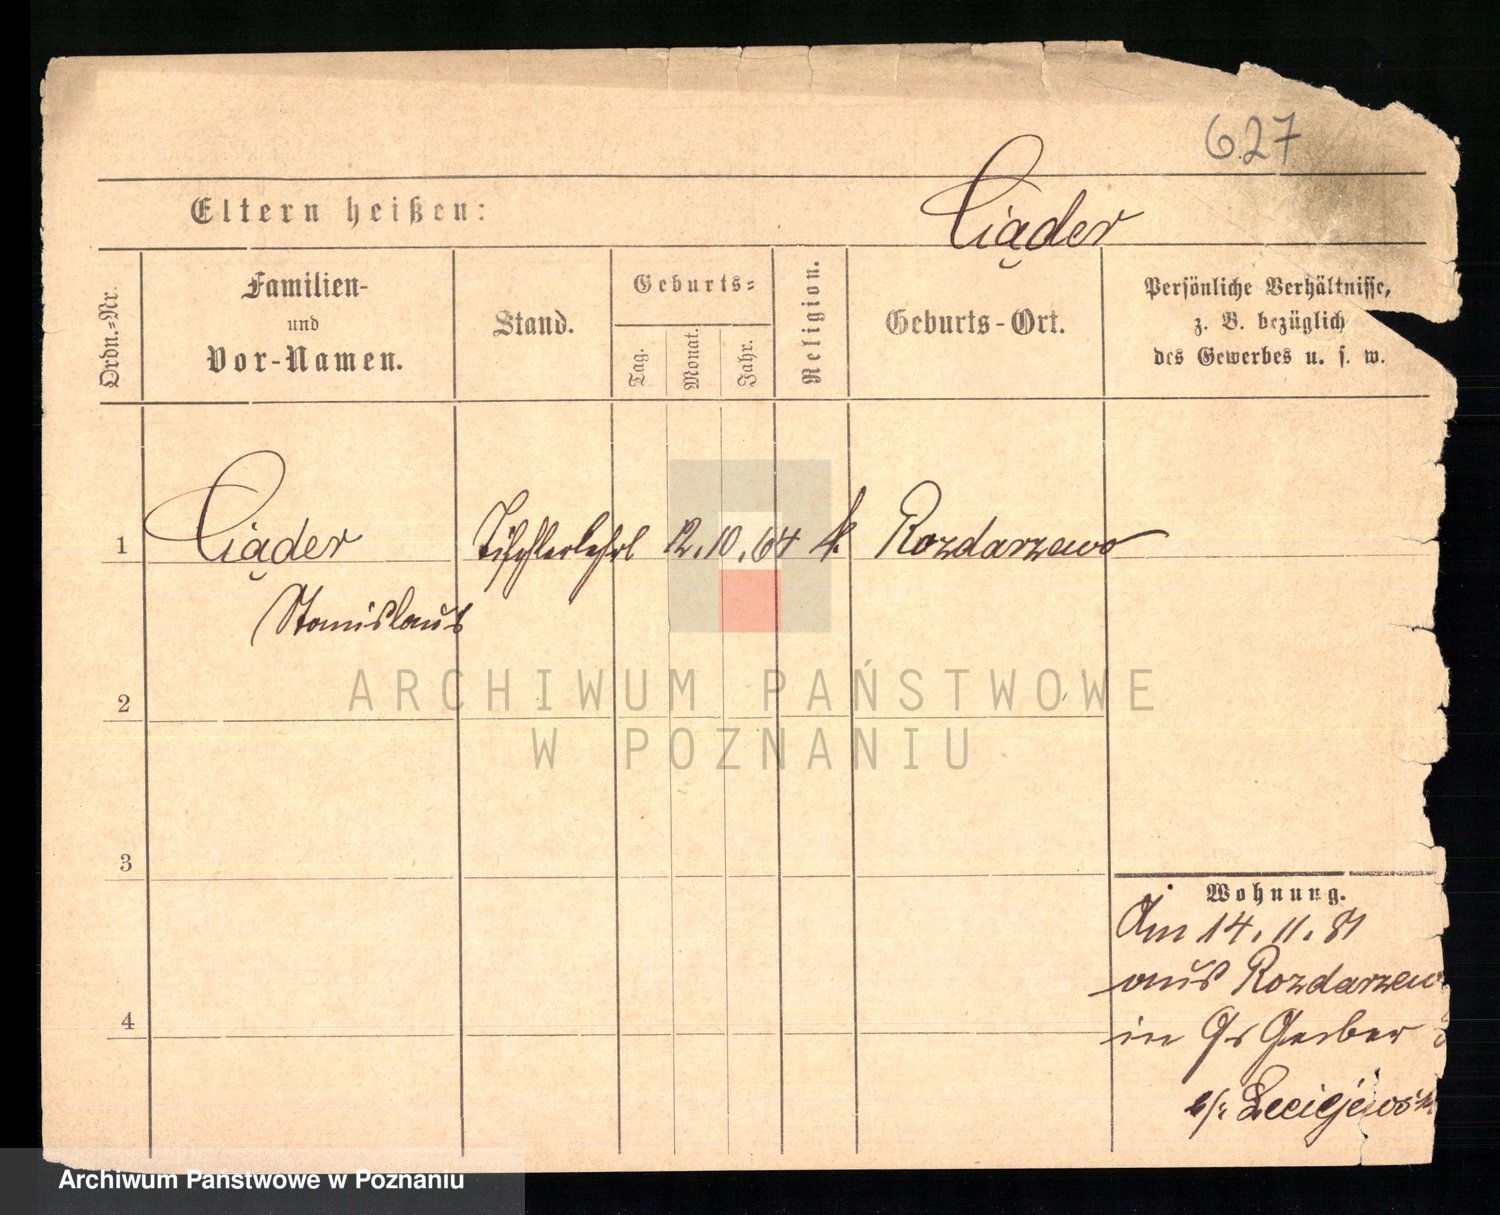 627
Eltern heißen:
Ciąder
Ordn.=Nr.
Familien-
und
Vor-Namen.
Stand.
Geburts=
Tag.
Monat.
Jahr.
Religion.
Geburts-Ort.
Persönliche Verhältnisse,
z. B. bezüglich
des Gewerbes u. s. w.
1
Ciąder
Tischlerlehrl
12.10.64
k.
Rozdarzewo
Stanislaus
ARCHIWUM PAŃSTWOWE
W POZNANIU
2
3
4
Wohnung.
Am 14.11.81
aus Rozdarzew
in Gr Gerber
b/: Leciejewsk
Archiwum Państwowe w Poznaniu